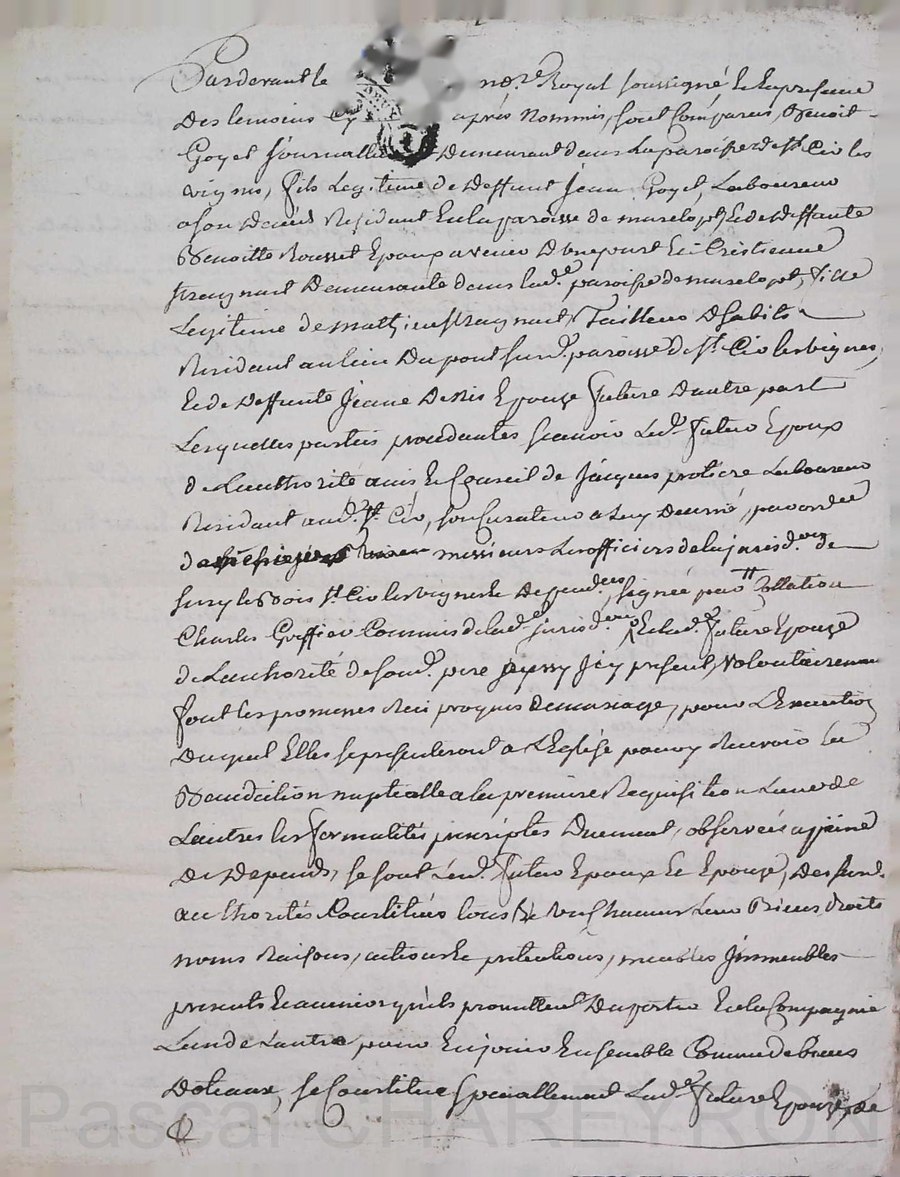 Pardevant le no.re Royal soussigné, Et En presence
Des temoins Cy après Nommés, sont Comparus, Benoit
Goyet Journallier Demeurant dans La paroisse de St. Cir les
vignes, fils Legitime de Deffunt Jean Goyet Laboureur
a son Deceds Residant En la paroisse de et de Deffunte
Benoitte Rousset Epoux avenir D'une part Et Cristienne
Demeurante dans lad.e paroisse de fille
Legitime de Mathieu Tailleur D'habits
Residant au lieu Du pont sur d. paroisse de St. Cir les vignes,
Et de Deffunte Jeanne Epouze future D'autre part
Lesquelles parties procedantes scavoir Led. futur Epoux
de L'authorité avis Et Conseil de Jacques protiere Laboureur
Residant aud. St. Cir, son Curateur a Luy Decerné, par
de messieurs Les officiers de la jurisd.on de
Sury le Bois St. Cir les vignes Et Dependces, signée par Collation
Charles Greffier Commis de lad.e jurisd.on Et lad.e future Epouze
de L'authorité de sond. pere aussy Icy present, Volontairement
font les promesses Reciproques De mariage, pour L'Execution
Duquel Elles se presenteront a L'Eglise pour y Recevoir la
Benediction nuptialle a la premiere Requisition L'une de
L'autre les formalités prescriptes Duement, observées a peine
De Depends, se sont Lesd. futur Epoux Et Epouze, Des susd.
authorités Constitués tous Et Leurs Biens droits
noms Raisons, actions Et pretentions, meubles Immeubles
presents Et avenirs qu'ils promettent D'aporter En la Compagnie
L'un de L'autre pour En jouir Ensemble Comme de biens
Doteaux, se Constitue speciallement Lad.e future Epouze de
Pascal CHAREYRON